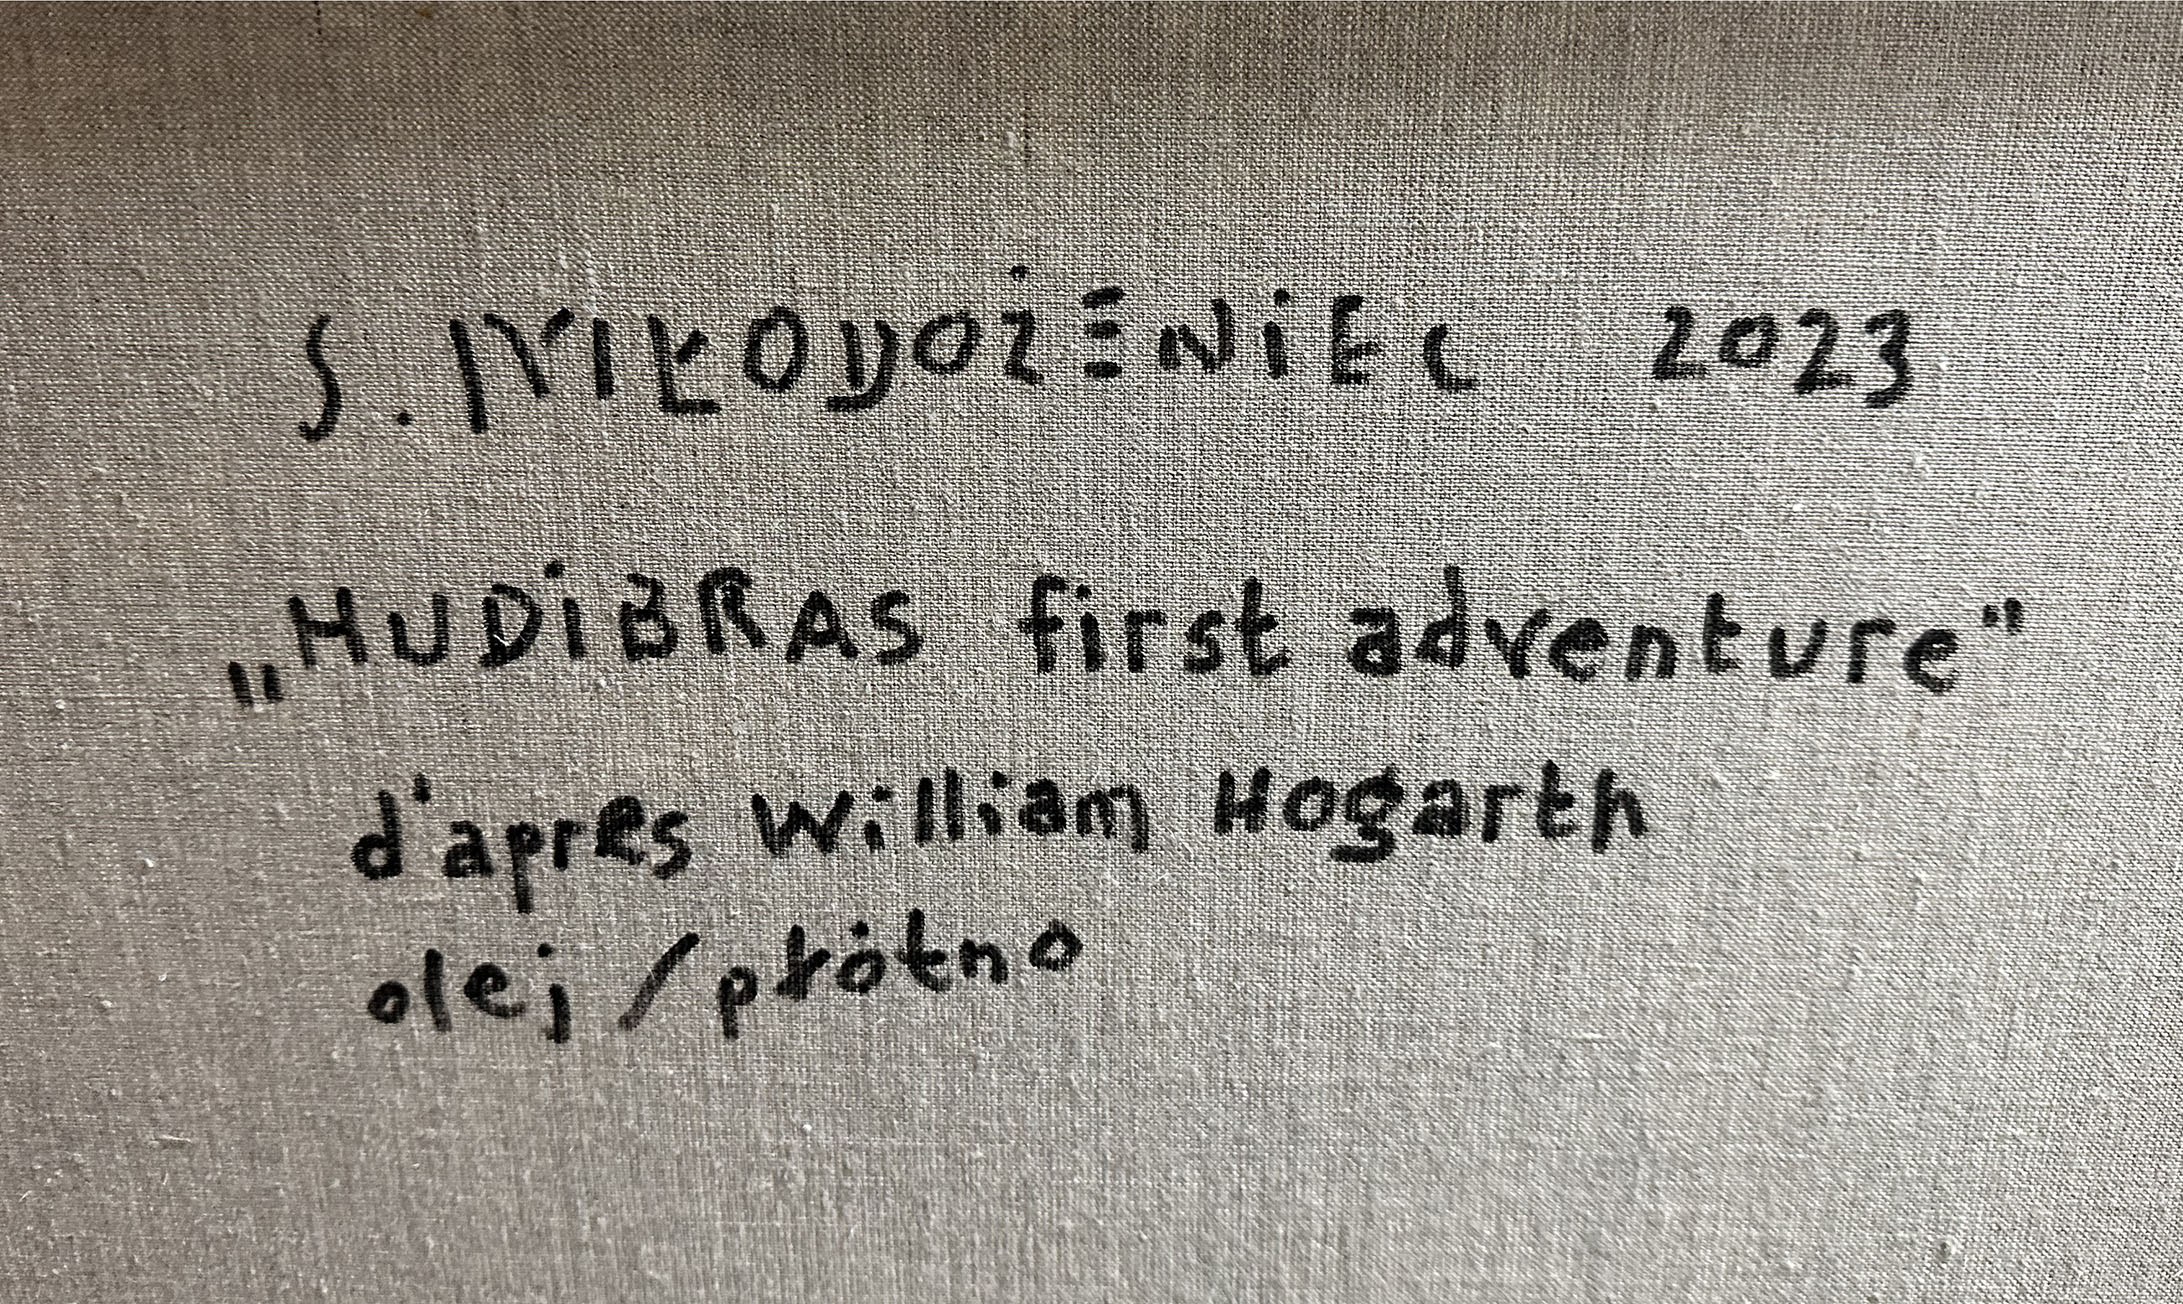 S. MŁODOŻENiEC 2023
„HUDiBRAS first adventure”
d'apres William Hogarth
olej / płótno